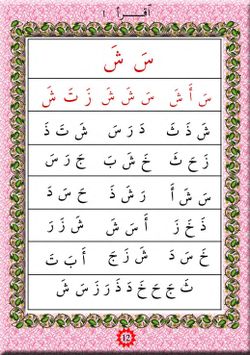 أقرأ ١
سَ شَ
سَ أَ شَ سَ شَ شَ زَ تَ شَ
شَ ذَ ثَ دَ رَ سَ شَ تَ ذَ
زَ حَ ثَ خَ شَ بَ جَ رَ سَ
سَ شَ أَ رَ شَ ذَ حَ سَ دَ
ذَ خَ زَ أَ سَ شَ شَ زَ رَ
خَ سَ دَ شَ زَ جَ أَ بَ تَ
ثَ جَ حَ خَ دَ ذَ رَ زَ سَ شَ
12